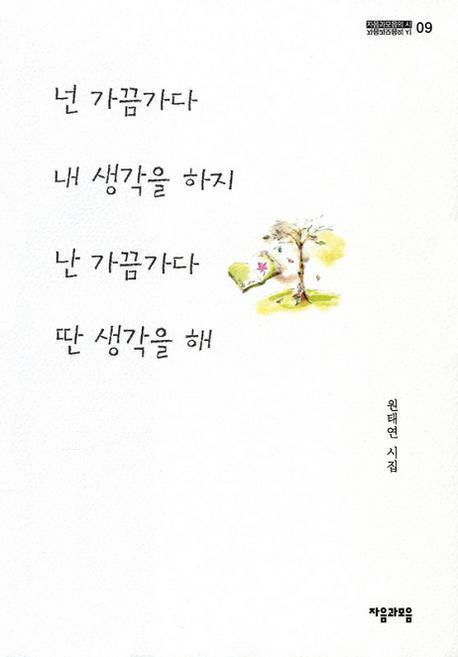 자음과모음의 시 09
넌 가끔가다
내 생각을 하지
난 가끔가다
딴 생각을 해
원태연 시집
자음과모음